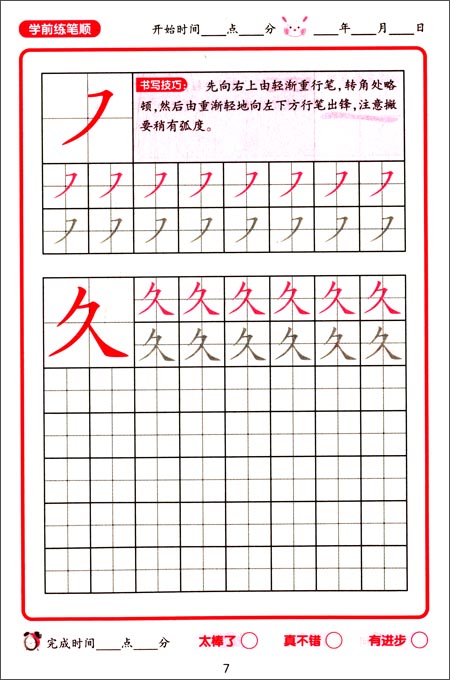 学前练笔顺
开始时间____点____分 ____年____月____日
书写技巧: 先向右上由轻渐重行笔,转角处略
顿,然后由重渐轻地向左下方行笔出锋,注意撇
要稍有弧度。
㇇
㇇ ㇇ ㇇ ㇇ ㇇ ㇇ ㇇ ㇇
㇇ ㇇ ㇇ ㇇ ㇇ ㇇ ㇇ ㇇
久
久 久 久 久 久 久
久 久 久 久 久 久
完成时间____点____分 太棒了 真不错 有进步
7